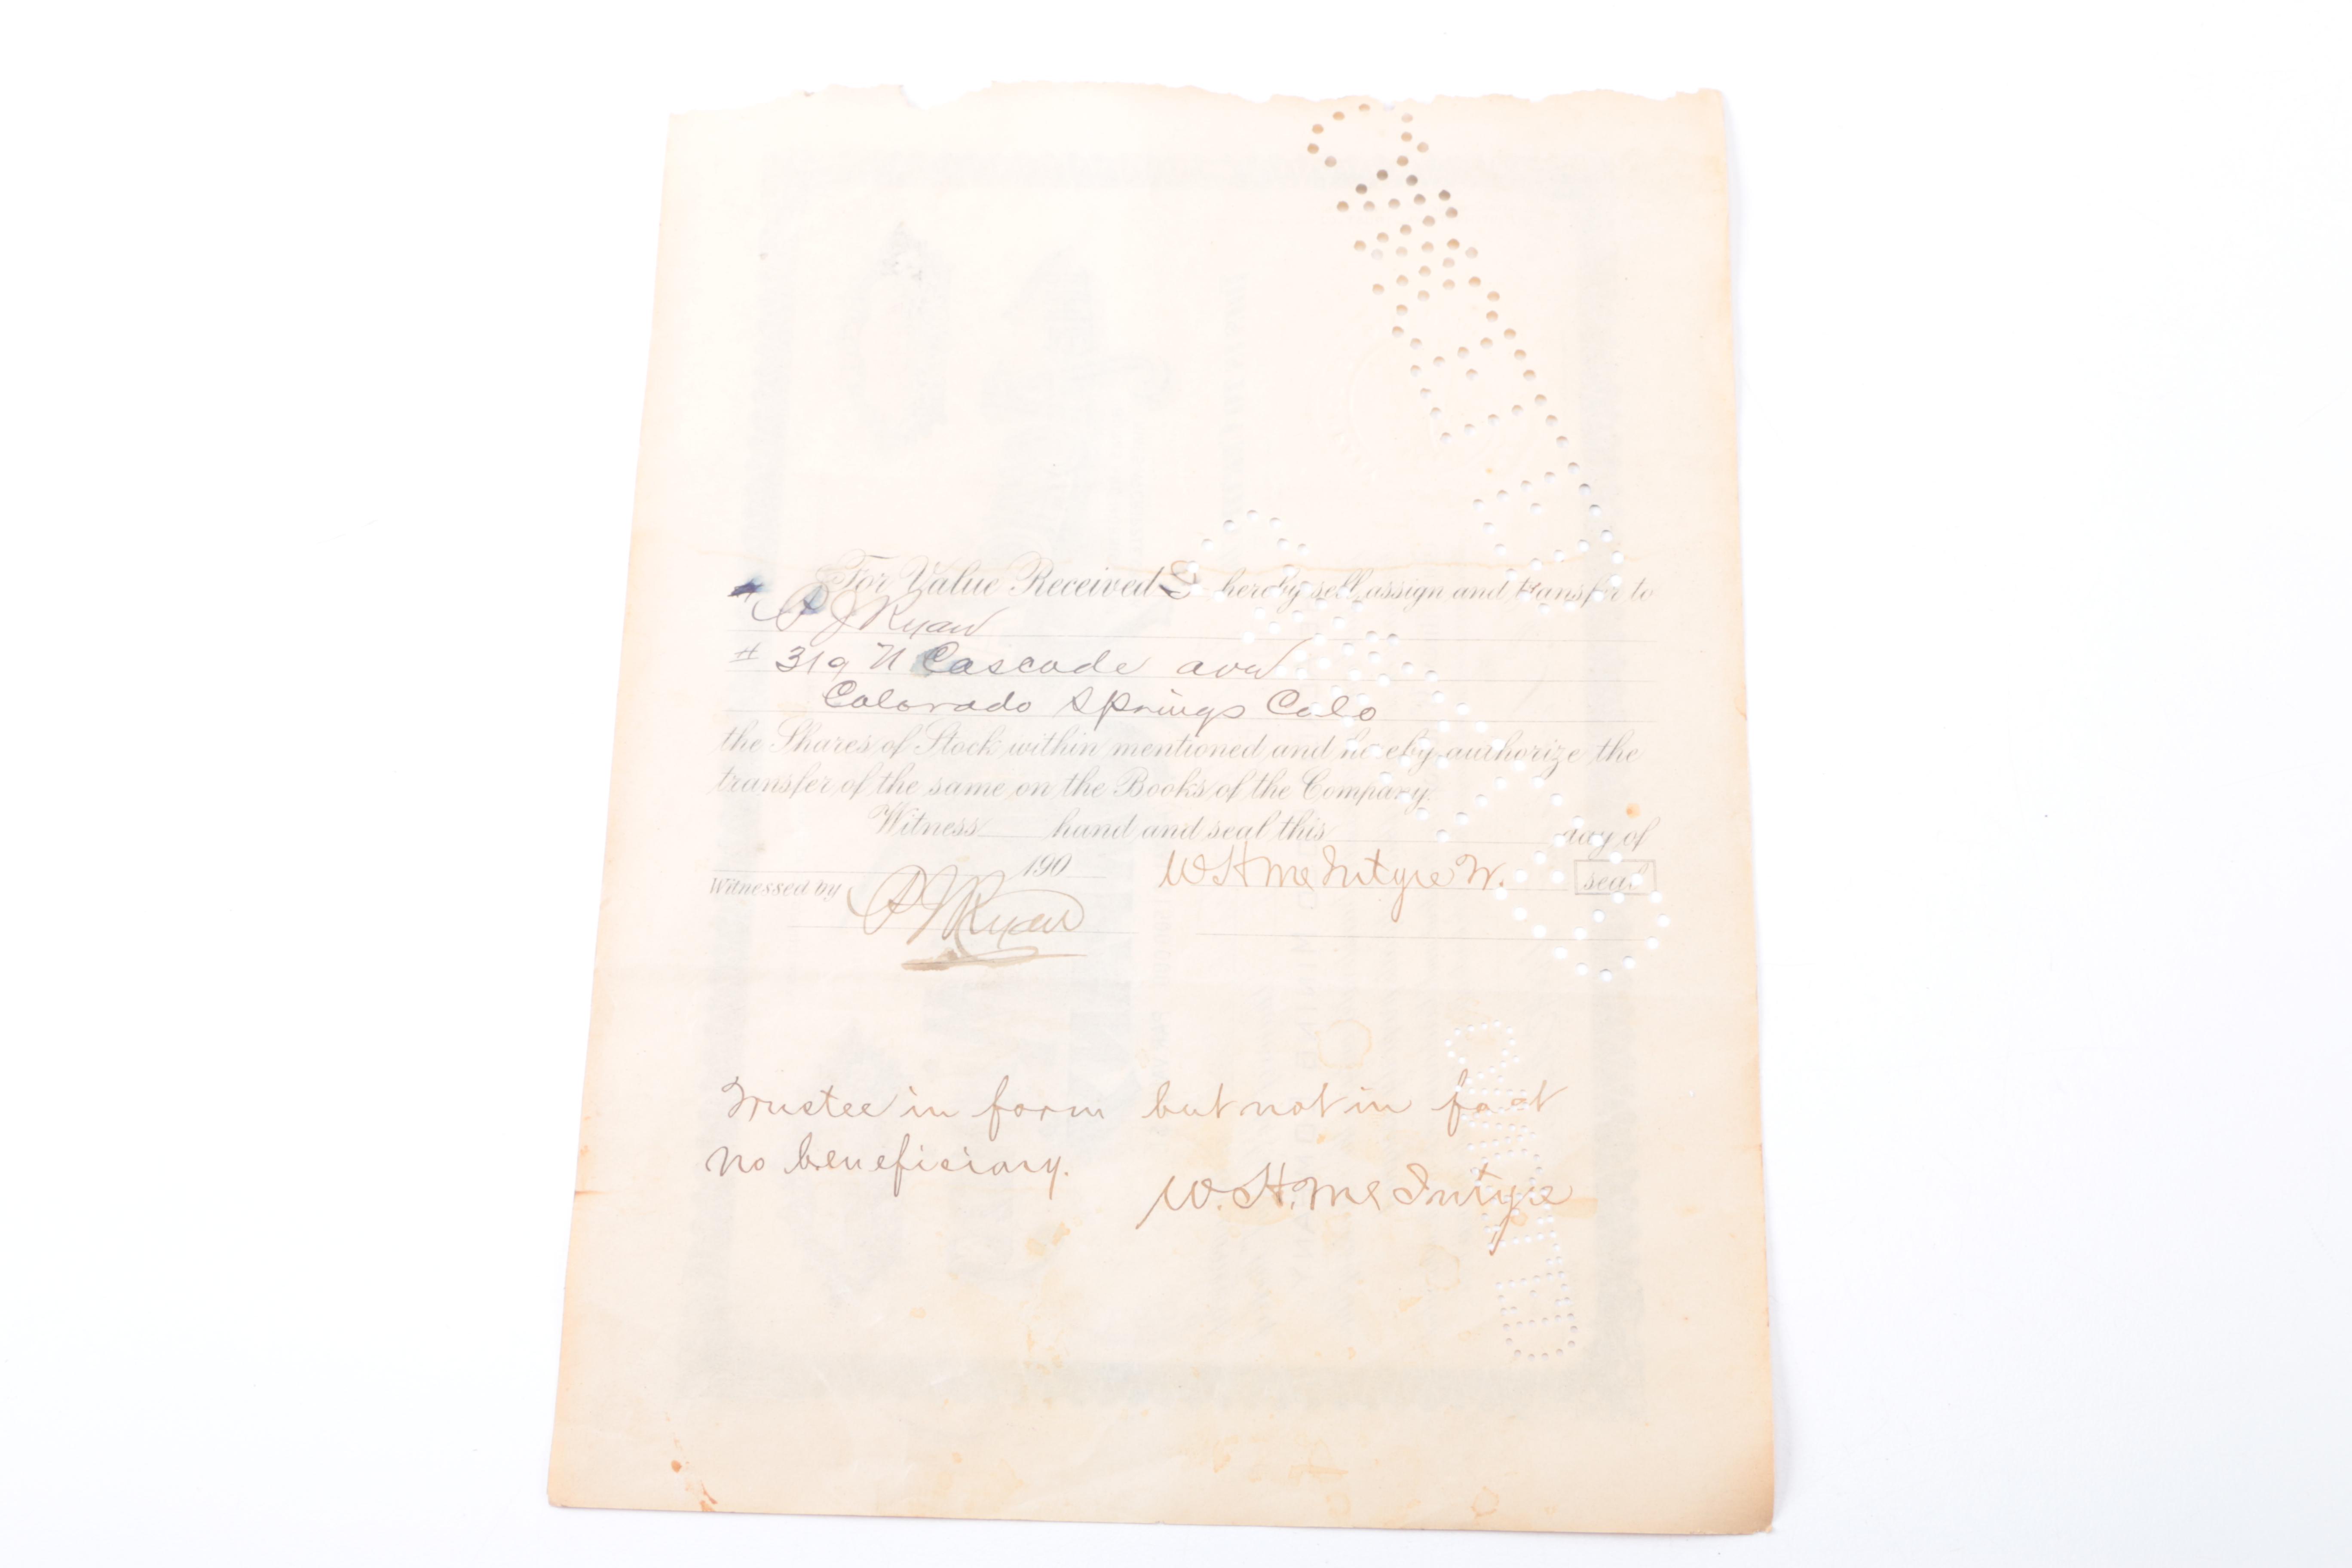 For Value Received I hereby sell, assign and transfer to
P J Ryan
# 319 N Cascade ave
Colorado Springs Colo
the Shares of Stock within mentioned and hereby authorize the
transfer of the same on the Books of the Company.
Witness hand and seal this day of
190 W H McIntyre Tr. seal
Witnessed by P J Ryan
Trustee in form but not in fact
no beneficiary.
W. H. McIntyre